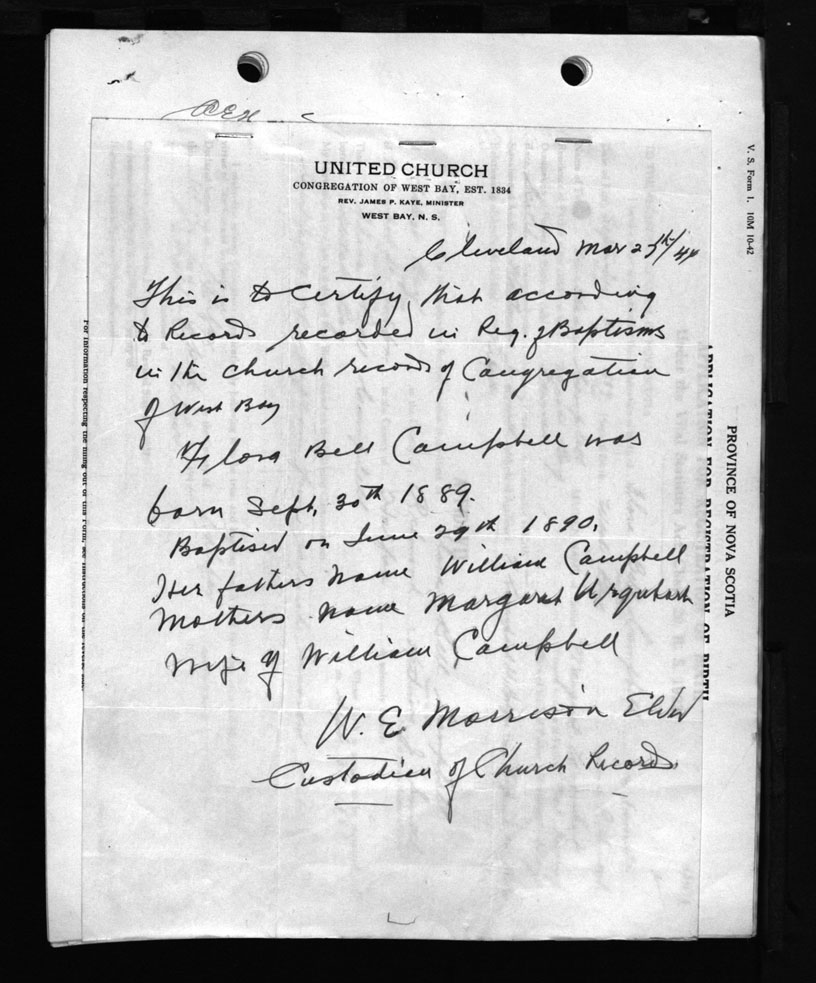 UNITED CHURCH
CONGREGATION OF WEST BAY, EST. 1834
REV. JAMES P. KAYE, MINISTER
WEST BAY, N. S.
Cleveland Mar 25th/44
This is to Certify that according
to Records recorded in Reg. of Baptisms
in the church records of Congregation
of West Bay
Flora Bell Campbell was
born Sept. 30th 1889.
Baptised on June 29th 1890.
Her fathers name William Campbell
Mothers name Margaret Urquhart
Wife of William Campbell
W. E. Morrison Elder
Custodian of Church Records.
V. S. Form 1. 10M 10-42
PROVINCE OF NOVA SCOTIA
APPLICATION FOR REGISTRATION OF BIRTH
For information respecting the filling out of this Form, see instructions on the